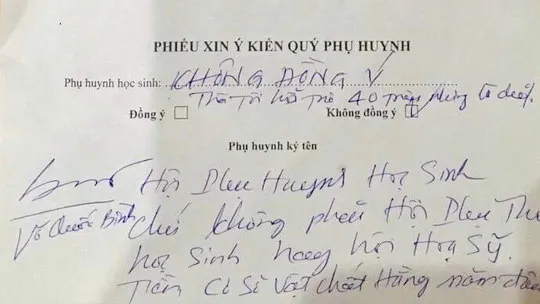 PHIẾU XIN Ý KIẾN QUÝ PHỤ HUYNH
Phụ huynh học sinh: KHÔNG ĐỒNG Ý
Thà Tôi hỗ trợ 40 triệu
Đồng ý ☐ Không đồng ý ☑
Phụ huynh ký tên
Hội Phụ Huynh Học Sinh
Võ Quốc Bình
chứ không phải Hội Phụ Thu
học Sinh hay hội Hoạ Sỹ.
Tiền Cơ Sở Vật chất Hàng năm